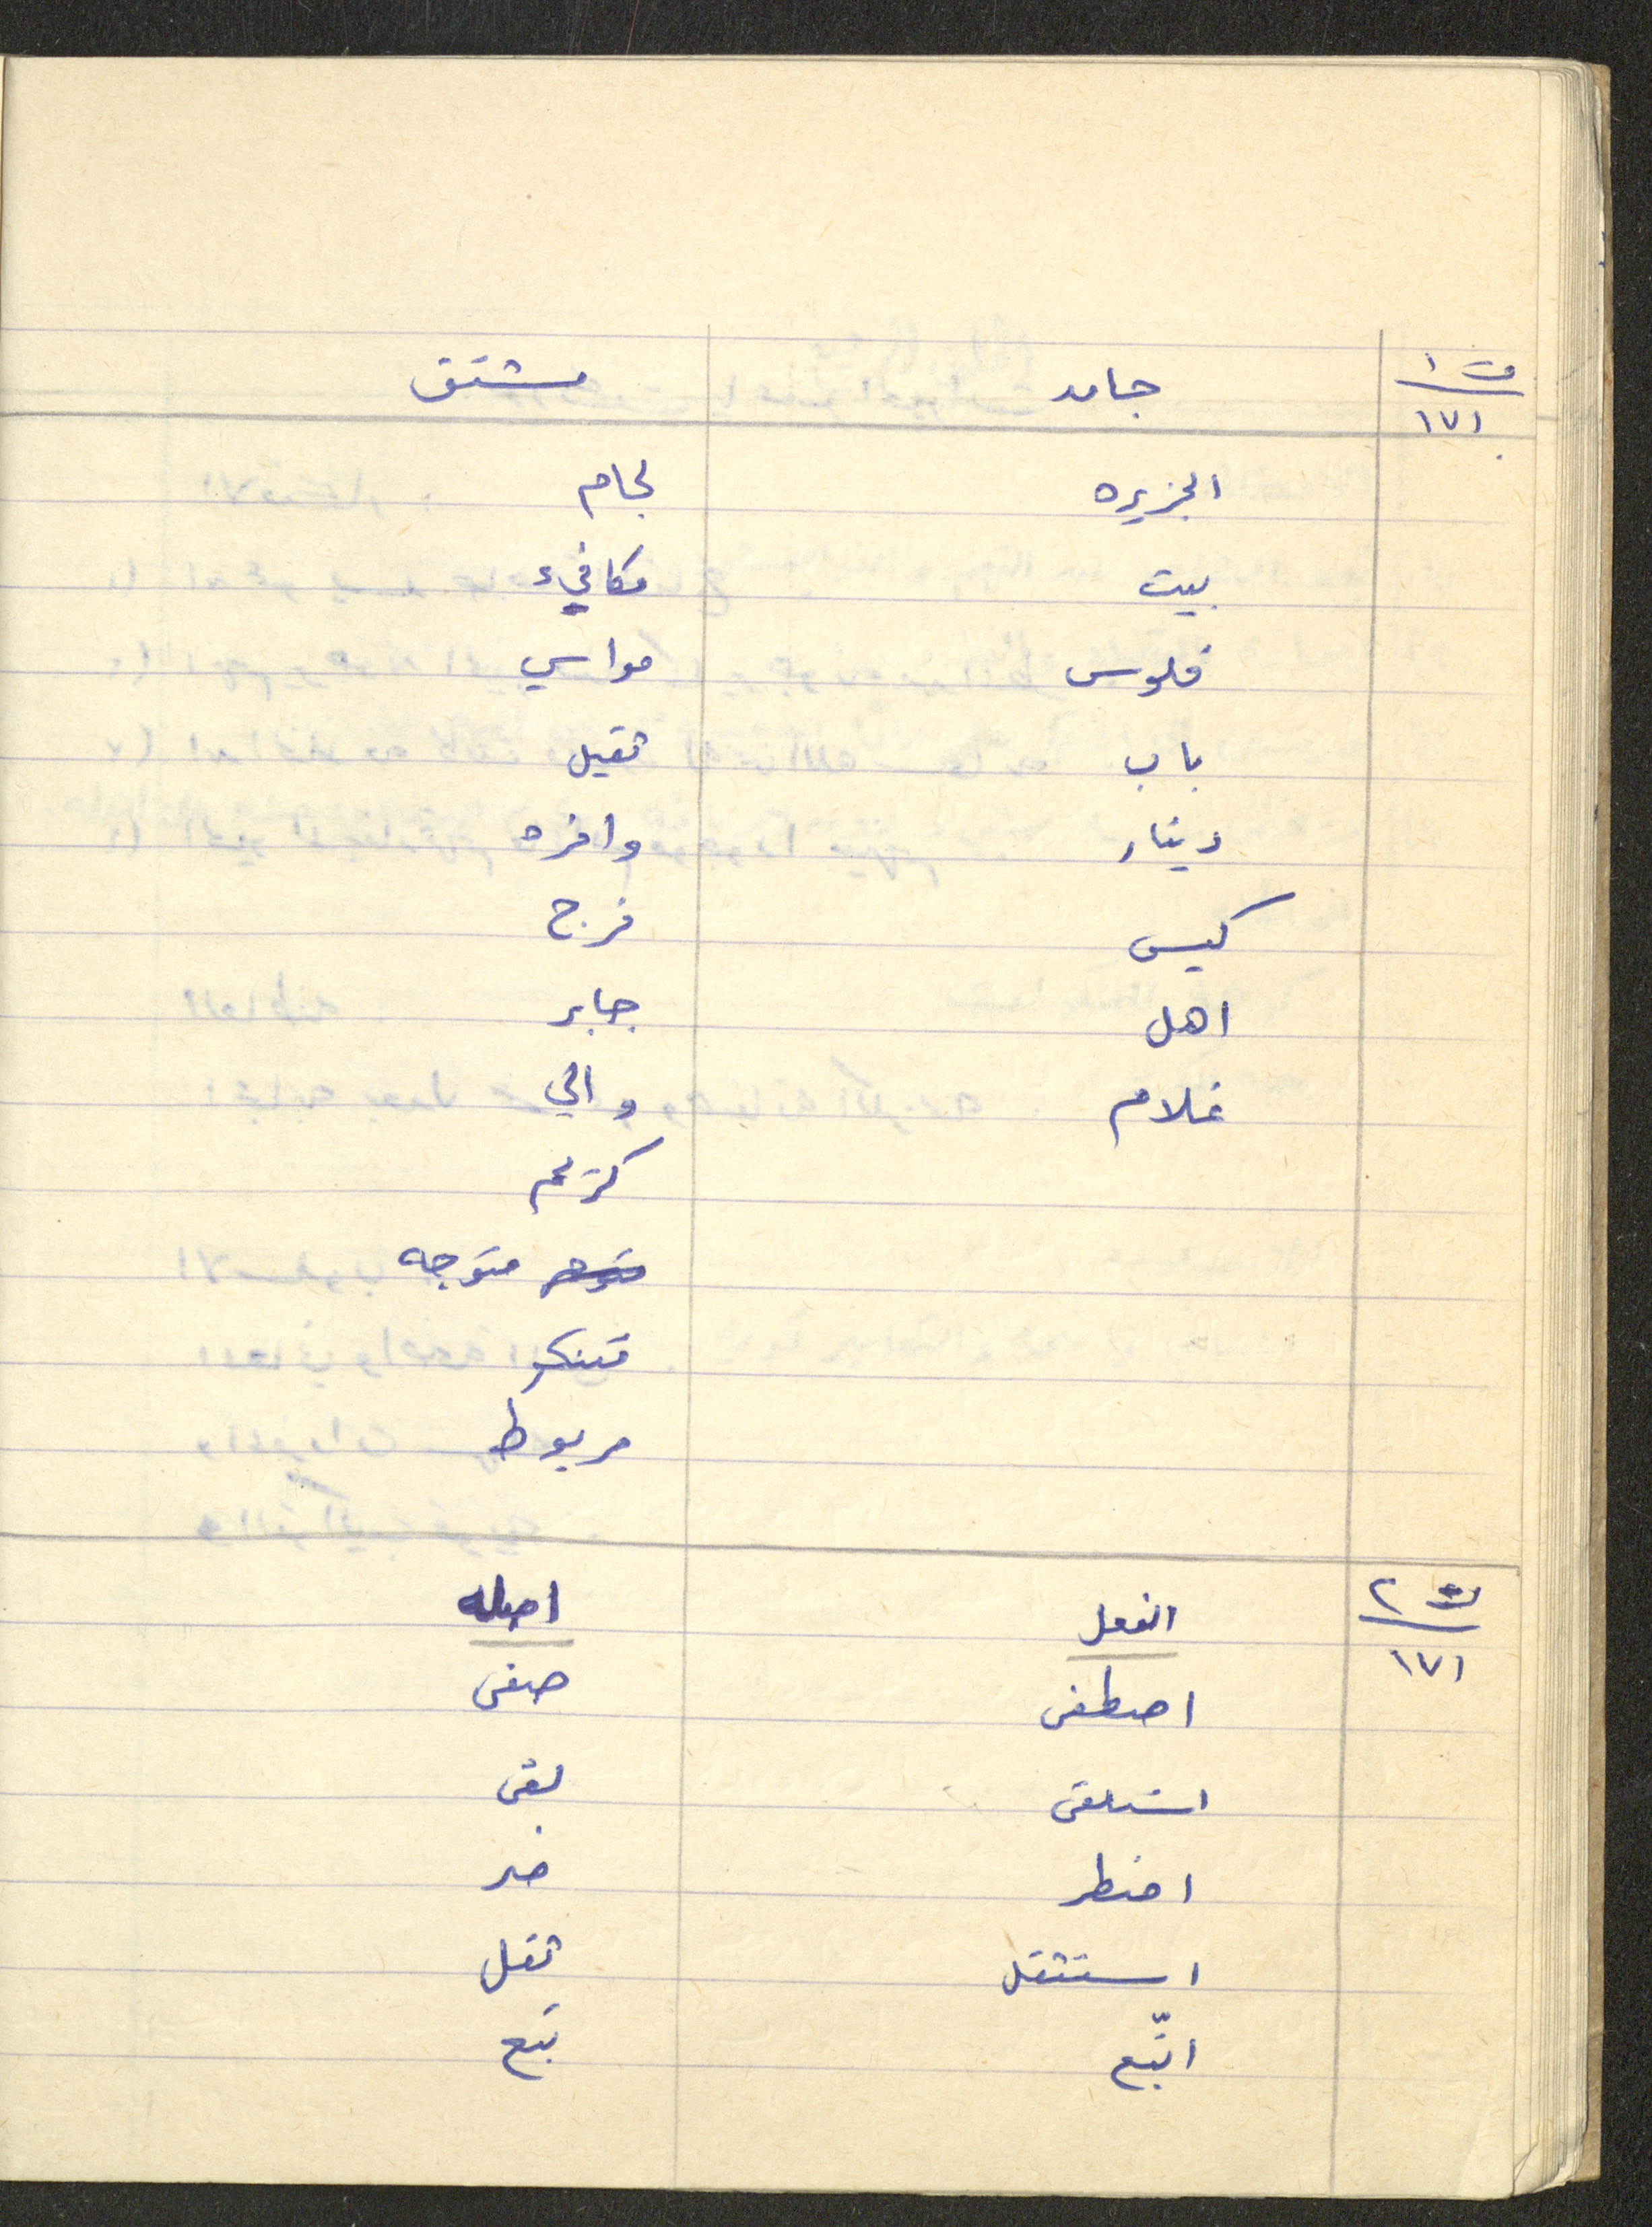 ت ١ جامد مشتق
١٧١
الجزيره لجام
بيت مكافيء
فلوس مواسي
باب ثقيل
دينار وافره
كيس فرج
اهل جابر
غلام والي
كريم
متوجه
متنكر
مربوط
ت ٢ الفعل اصله
١٧١
اصطفى صفى
استلقى لقى
اضطر ضر
استثقل ثقل
اتّبع تبع